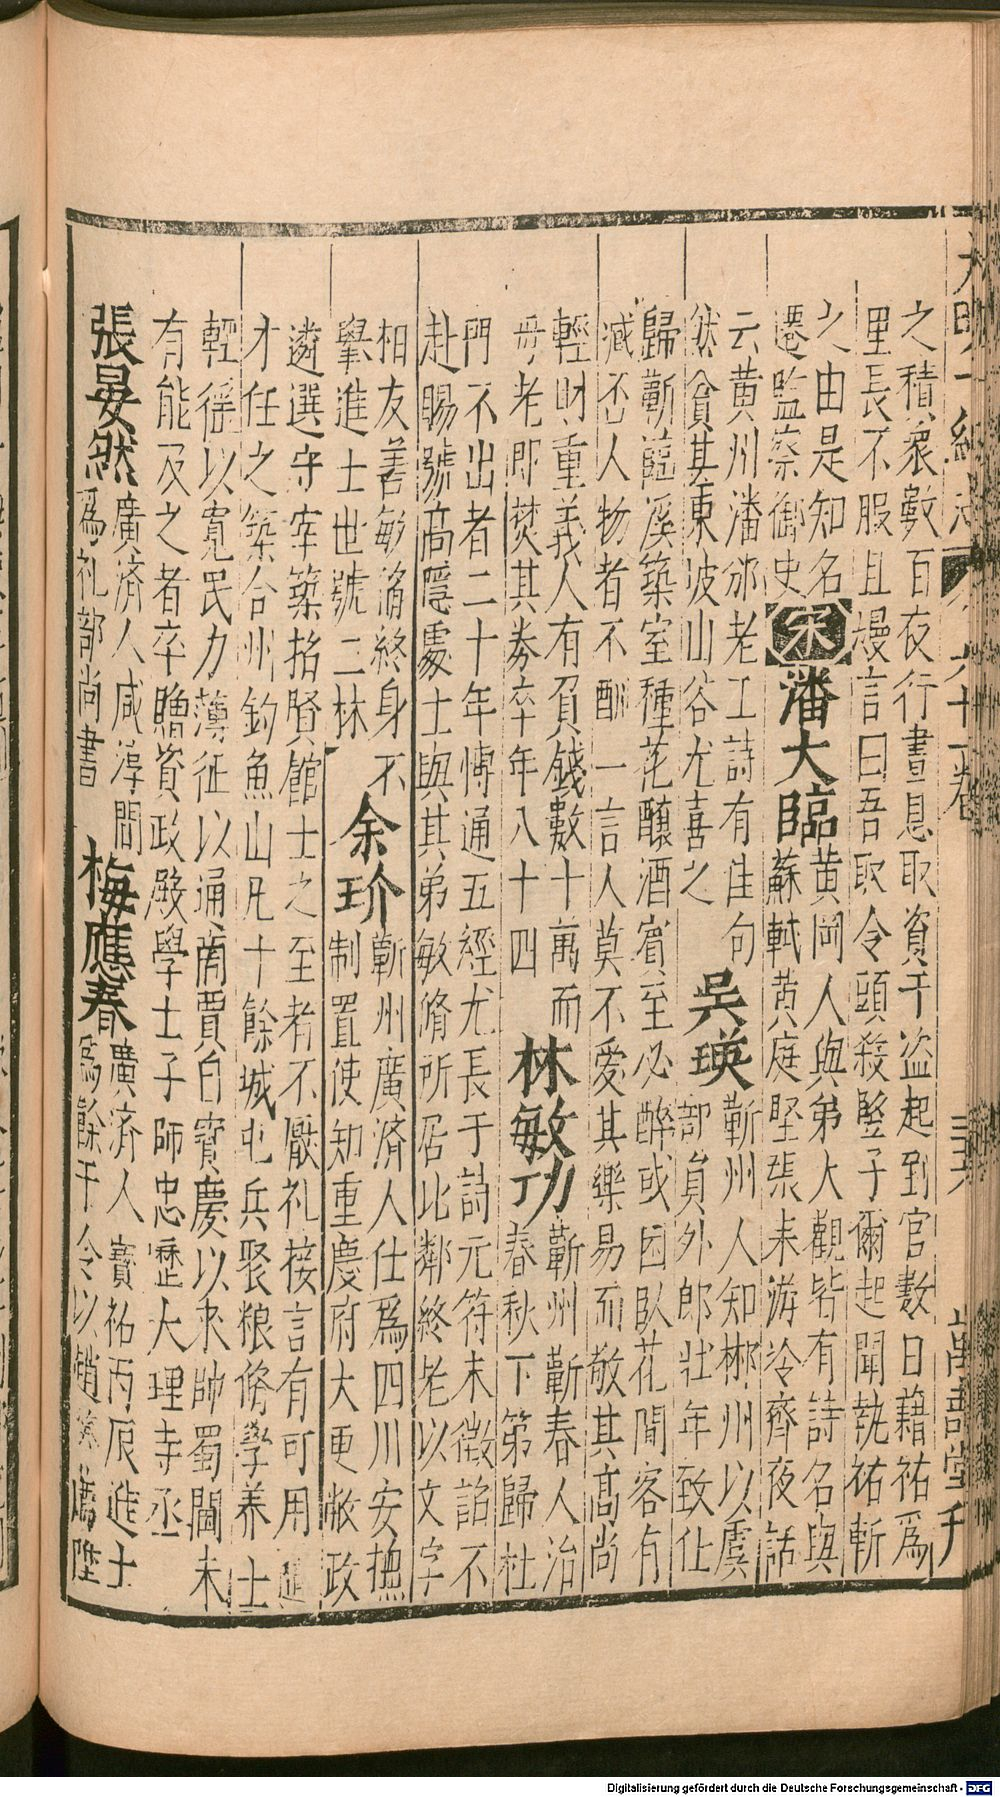 大明一統志 卷六十一 萬壽堂刊
之積衆數百夜行晝息取資于盜起到官數日藉祐為
里長不服且嫚言曰吾取令頭殺豎子爾起聞執祐斬
之由是知名
遷監察御史
宋
潘大臨
黃岡人與弟大觀皆有詩名與
蘇軾黃庭堅張耒游冷齊夜話
云黃州潘邠老工詩有佳句
然貧甚東坡山谷尤喜之
吳瑛
蘄州人知郴州以虞
部員外郎壯年致仕
歸蘄臨溪築室種花釀酒賔至必醉或困臥花間客有
臧否人物者不酬一言人莫不愛其樂易而敬其髙尚
輕財重義人有負錢數十萬而
毋老即焚其券卒年八十四
林敏功
蘄州蘄春人治
春秋下第歸杜
門不出者二十年愽通五經尤長于詩元符末徵詔不
赴賜號高隱處士與其弟敏脩所居比鄰終老以文字
相友善敏脩終身不
舉進士世號二林
余玠
蘄州廣濟人仕為四川安撫
制置使知重慶府大更敝政
遴選守宰築招賢館士之至者不厭礼接言有可用隨
才任之築合州釣魚山凡十餘城屯兵聚粮脩學养士
輕徭以寬民力薄征以通商賈自寳慶以来帥蜀閫未
有能及之者卒贈資政殿學士子師忠歷大理寺丞
張晏然
廣濟人咸淳間
為礼部尚書
梅應春
廣濟人寳祐丙辰進士
為餘干令以銷 薦陞
Digitalisierung gefördert durch die Deutsche Forschungsgemeinschaft - DFG